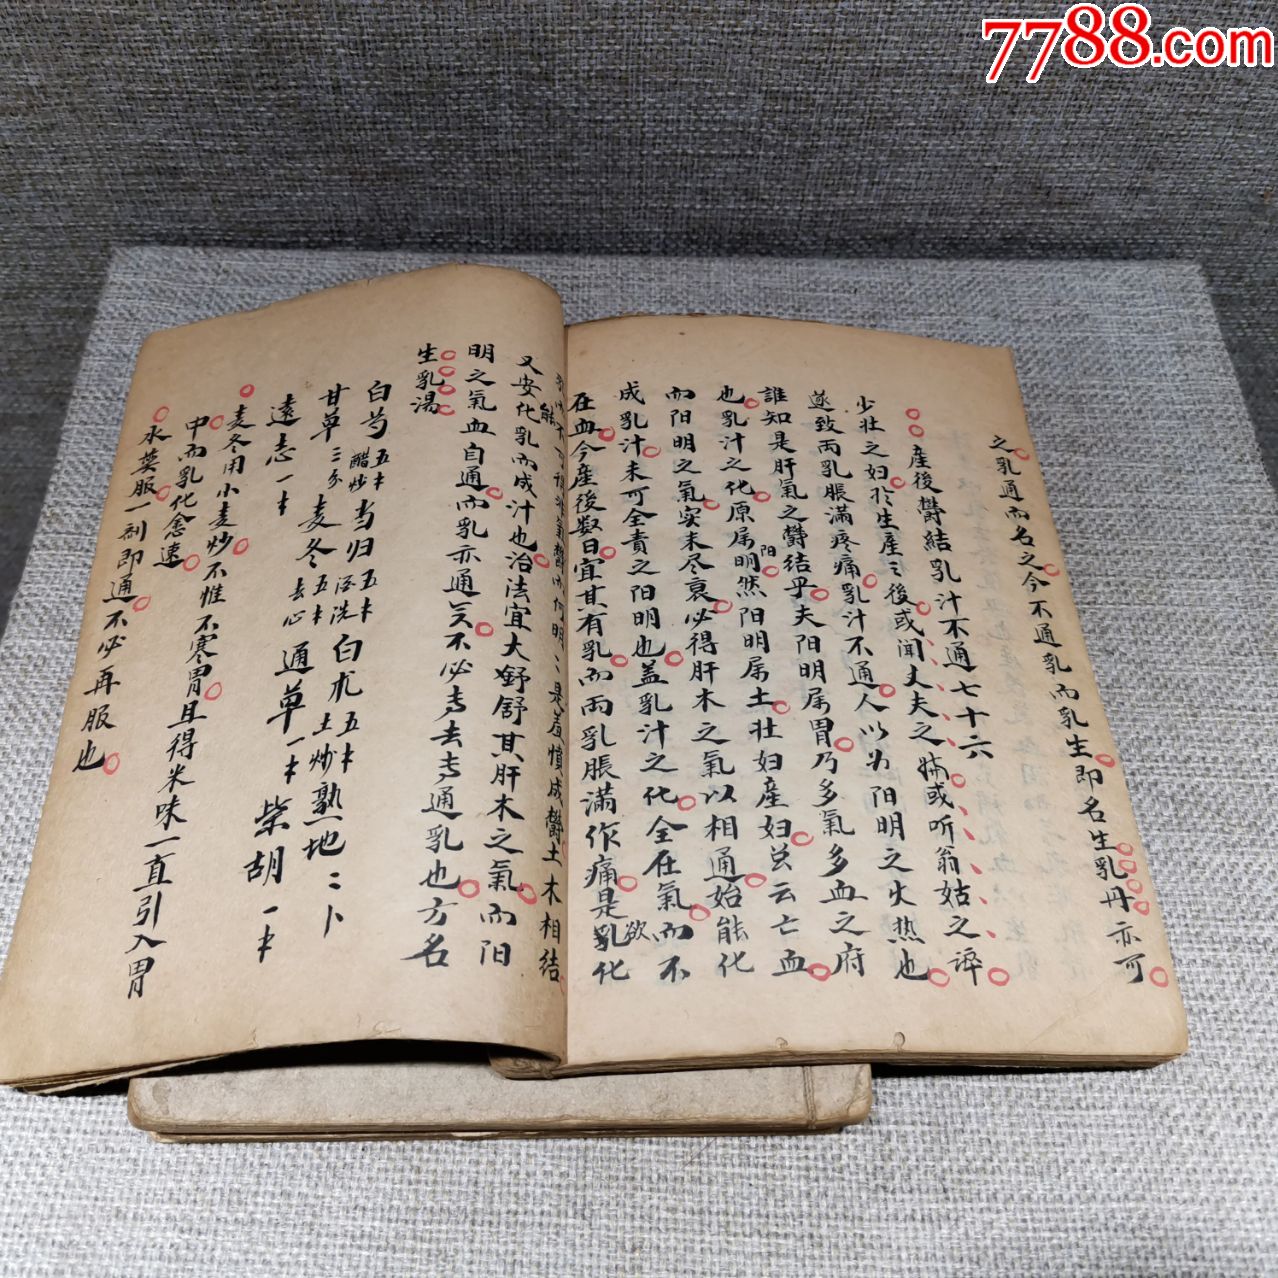 7788.com
之乳通而名之今不通乳而乳生即名生乳丹亦可
產後欝結乳汁不通七十六
少壯之婦於生產之後或聞丈夫之嫌或听翁姑之谇
遂致两乳脹滿疼痛乳汁不通人以为阳明之火热也
誰知是肝氣之欝结乎夫阳明属胃乃多氣多血之府
也乳汁之化原属阳明然阳明属土壮妇産妇虽云亡血
而阳明之氣实未尽衰必得肝木之氣以相通始能化
成乳汁未可全責之阳明也盖乳汁之化全在氣而不
在血今産後数日宜其有乳而两乳脹滿作痛是欲乳化
能
欝而何明〻是羞憤成欝土木相结
又安化乳而成汁也治法宜大舒其肝木之氣而阳
明之氣血自通而乳亦通矣不必耑去耑通乳也方名
生乳湯
白芍五钅醋炒 当归五钅酒洗 白朮五钅土炒 熟地〻卜
甘草三分 麦冬五钅去心 通草一钅 柴胡一钅
遠志一钅
麦冬用小麦炒不惟不寒胃且得米味一直引入胃
中而乳化愈速
水葉服一剂即通不必再服也